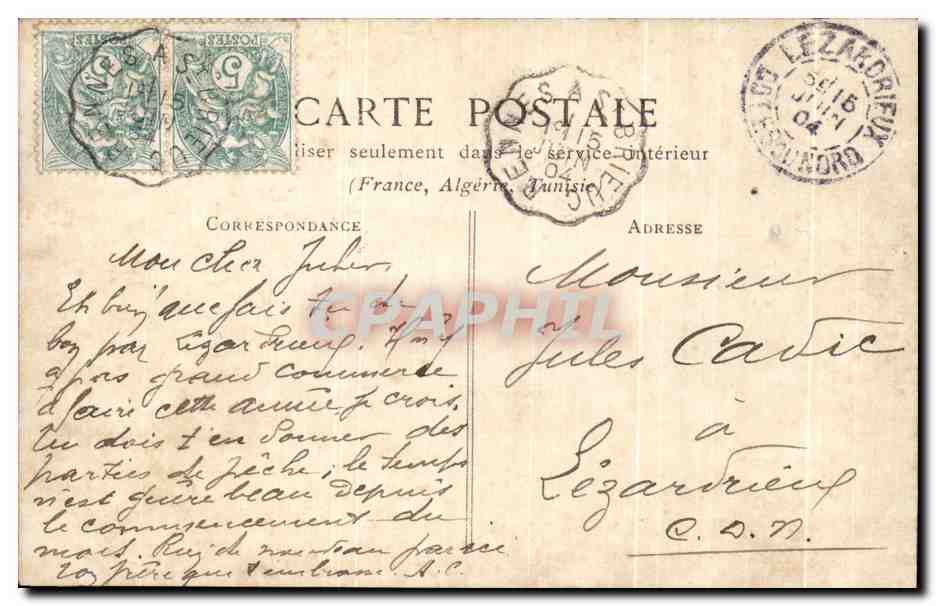 POSTES
5
POSTES
5
RENNES A ST BRIEUC
RENNES A ST BRIEUC
15
JUIN
04
LEZARDRIEUX
15
JUIN
04
COTES DU NORD
CARTE POSTALE
liser seulement dans le service intérieur
(France, Algérie, Tunisie
CORRESPONDANCE
ADRESSE
CPAPHIL
Mon cher Jules,
Eh bien que fais tu de
bon par Lézardrieux. Il n'y
a pas grand commerce
à faire cette année je crois.
Tu dois t'en donner des
parties de pêche; le temps
n'est guère beau depuis
le commencement du
mois. Rien de nouveau par ici
Ton père qui t'embrasse. A.C.
Monsieur
Jules Cadic
à
Lézardrieux
C.D.N.